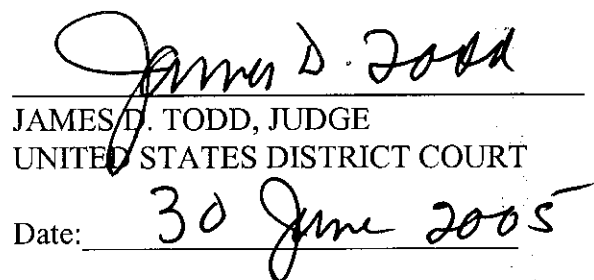 James D. Todd
JAMES D. TODD, JUDGE
UNITED STATES DISTRICT COURT
Date: 30 June 2005